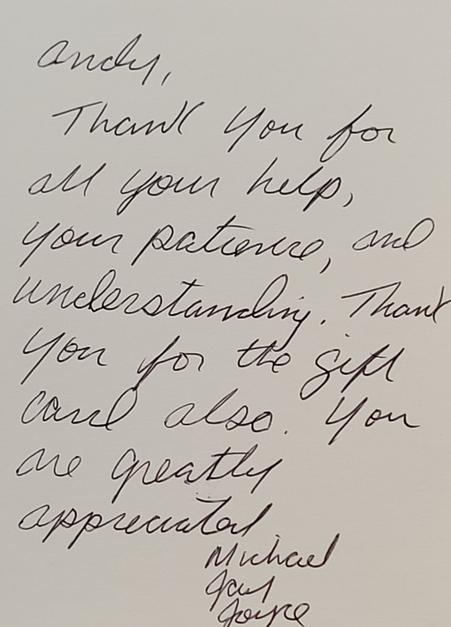 Andy,
Thank You for
all your help,
your patience, and
understanding. Thank
You for the gift
card also. You
are greatly
appreciated
Michael
Joyce